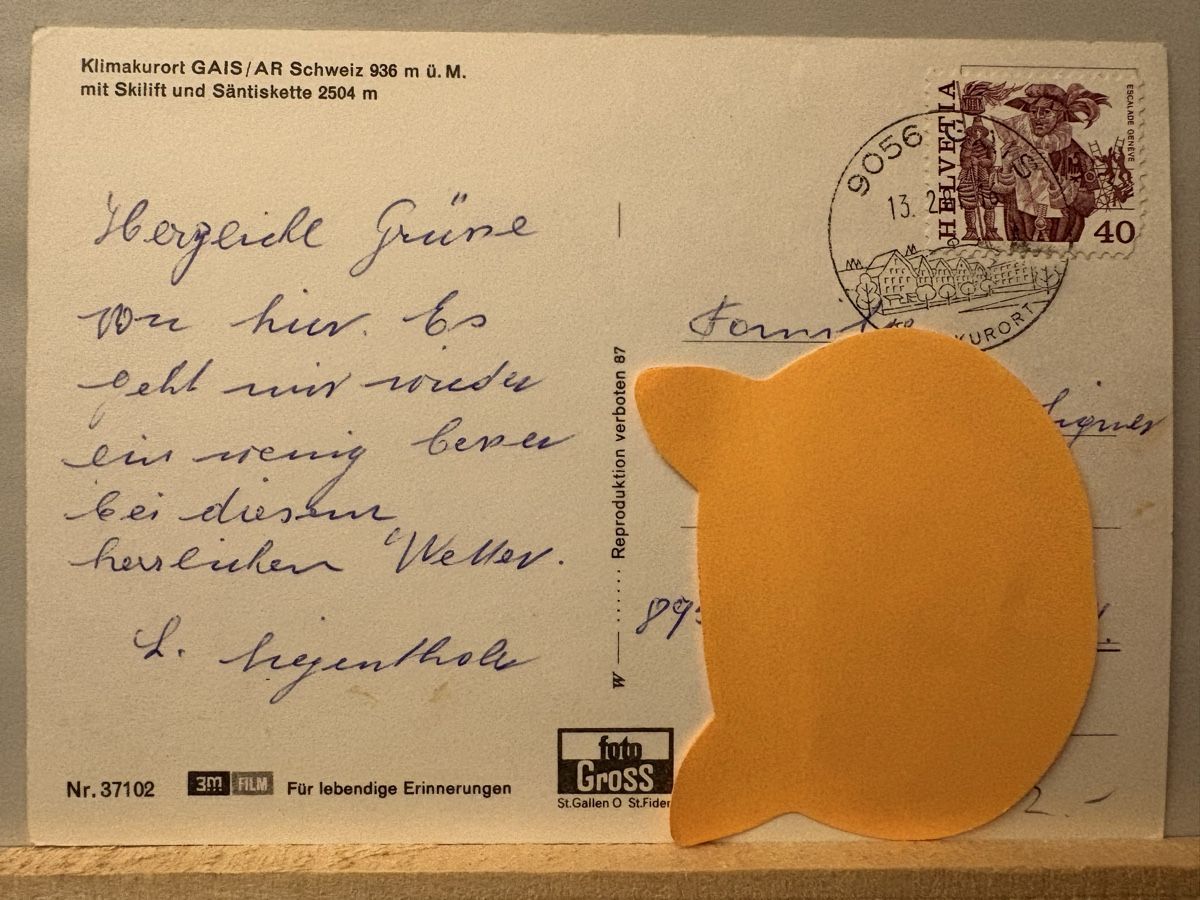 Klimakurort GAIS/AR Schweiz 936 m ü. M.
mit Skilift und Säntiskette 2504 m
HELVETIA
ESCALADE GENÈVE
40
9056
13. 2
KURORT
Herzliche Grüsse
von hier. Es
geht mir wieder
ein wenig besser
bei diesem
herrlichen Wetter.
L.
Reproduktion verboten 87
W
895
Nr. 37102
3M FILM
Für lebendige Erinnerungen
foto
Gross
St.Gallen O St.Fiden